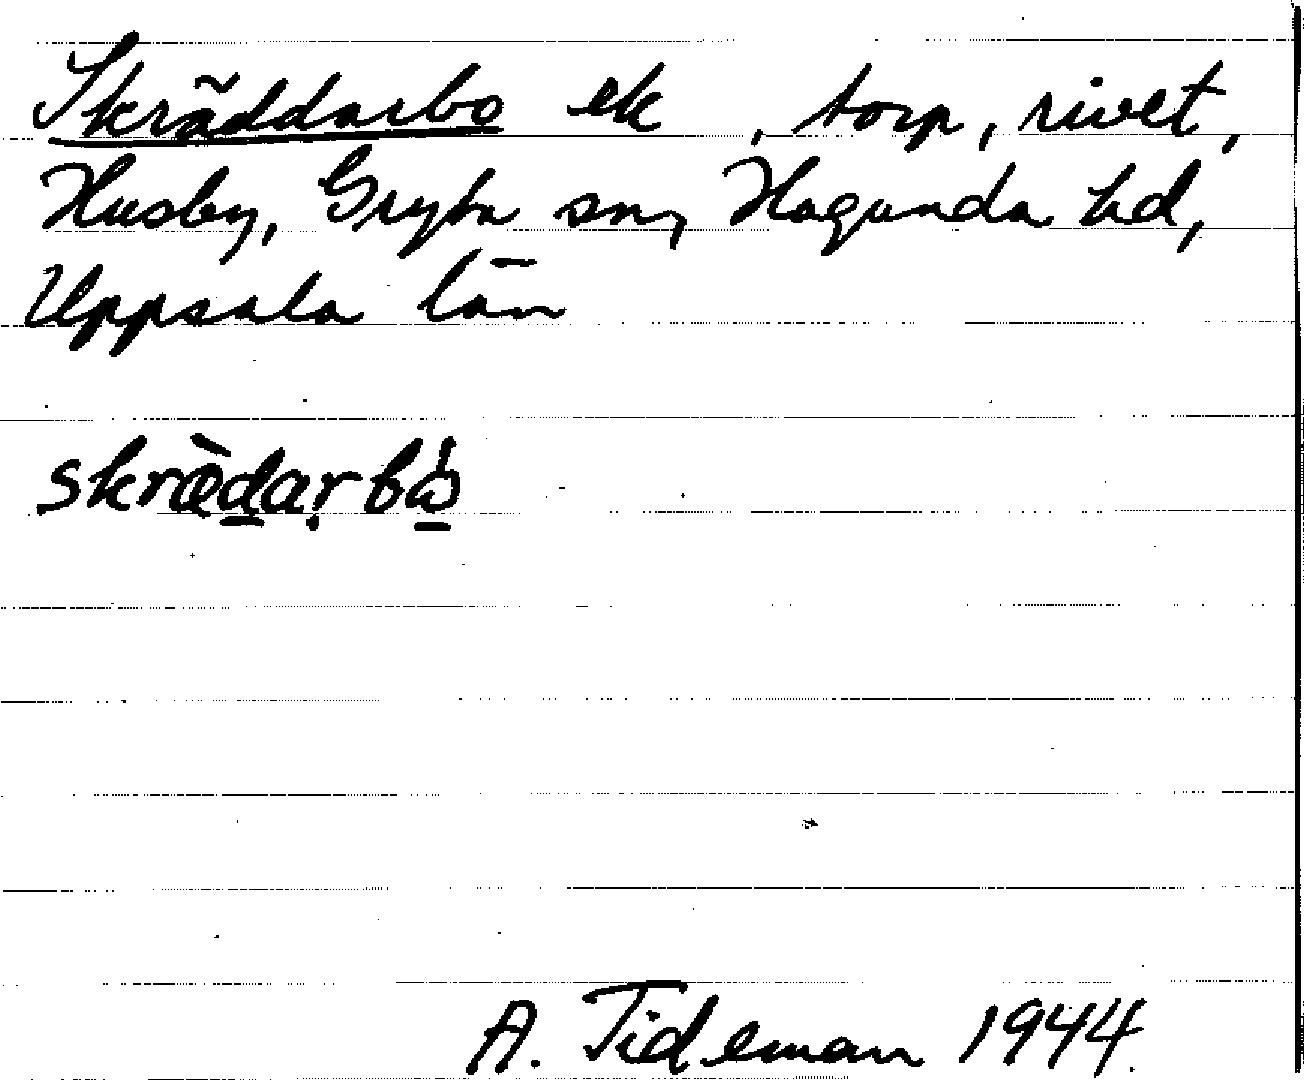 Skräddarbo ek , torp, rivet,
Husby, Gryta sn, Hagunda hd,
Uppsala län
skræ̀darbω
A. Tideman 1944.